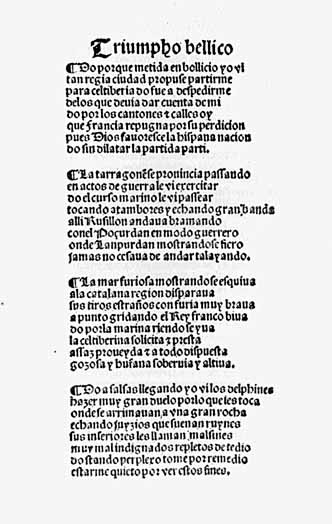 Triumpho bellico
¶Do porque metida en bollicio yo vi
tan regia ciudad propuse partirme
para celtiberia do fue a despedirme
delos que deuia dar cuenta de mi
do por los cantones & calles oy
que francia repugna por su perdicion
pues Dios fauoresce la hispana nacion
do sin dilatar la partida parti.
¶La tarragonese prouincia passando
en actos de guerra le vi exercitar
do el curso marino le vi passear
tocando atambores y echando gran banda
alli Rusillon andaua bramando
con el Poçurdan en modo guerrero
onde Lanpurdan mostrandose fiero
jamas no cesaua de andar talayando.
¶La mar furiosa mostrandose esquiua
a la catalana region disparaua
sus tiros estraños con furia muy braua
a punto gridando el Rey franco biua
do por la marina riendo se yua
la celtiberina solicita & presta
assaz proueyda & a todo dispuesta
gozosa y vfana soberuia y altiua.
¶Do a salsas llegando yo vi los delphines
hazer muy gran duelo por lo que les toca
onde se arrimauan a vna gran rocha
echando juyzios que suenan ruynes
sus inferiores les llaman malsines
muy mal indignados repletos de tedio
do stando perplexo tome por remedio
estarme quieto por ver estos fines.